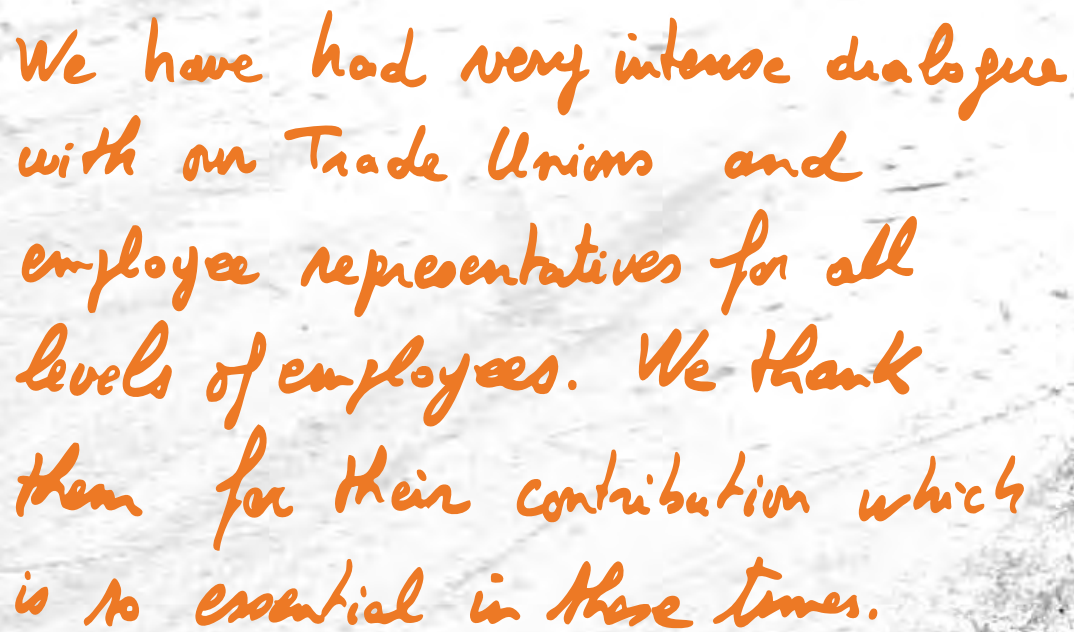 We have had very intense dialogue
with our Trade Unions and
employee representatives for all
levels of employees. We thank
them for their contribution which
is so essential in those times.